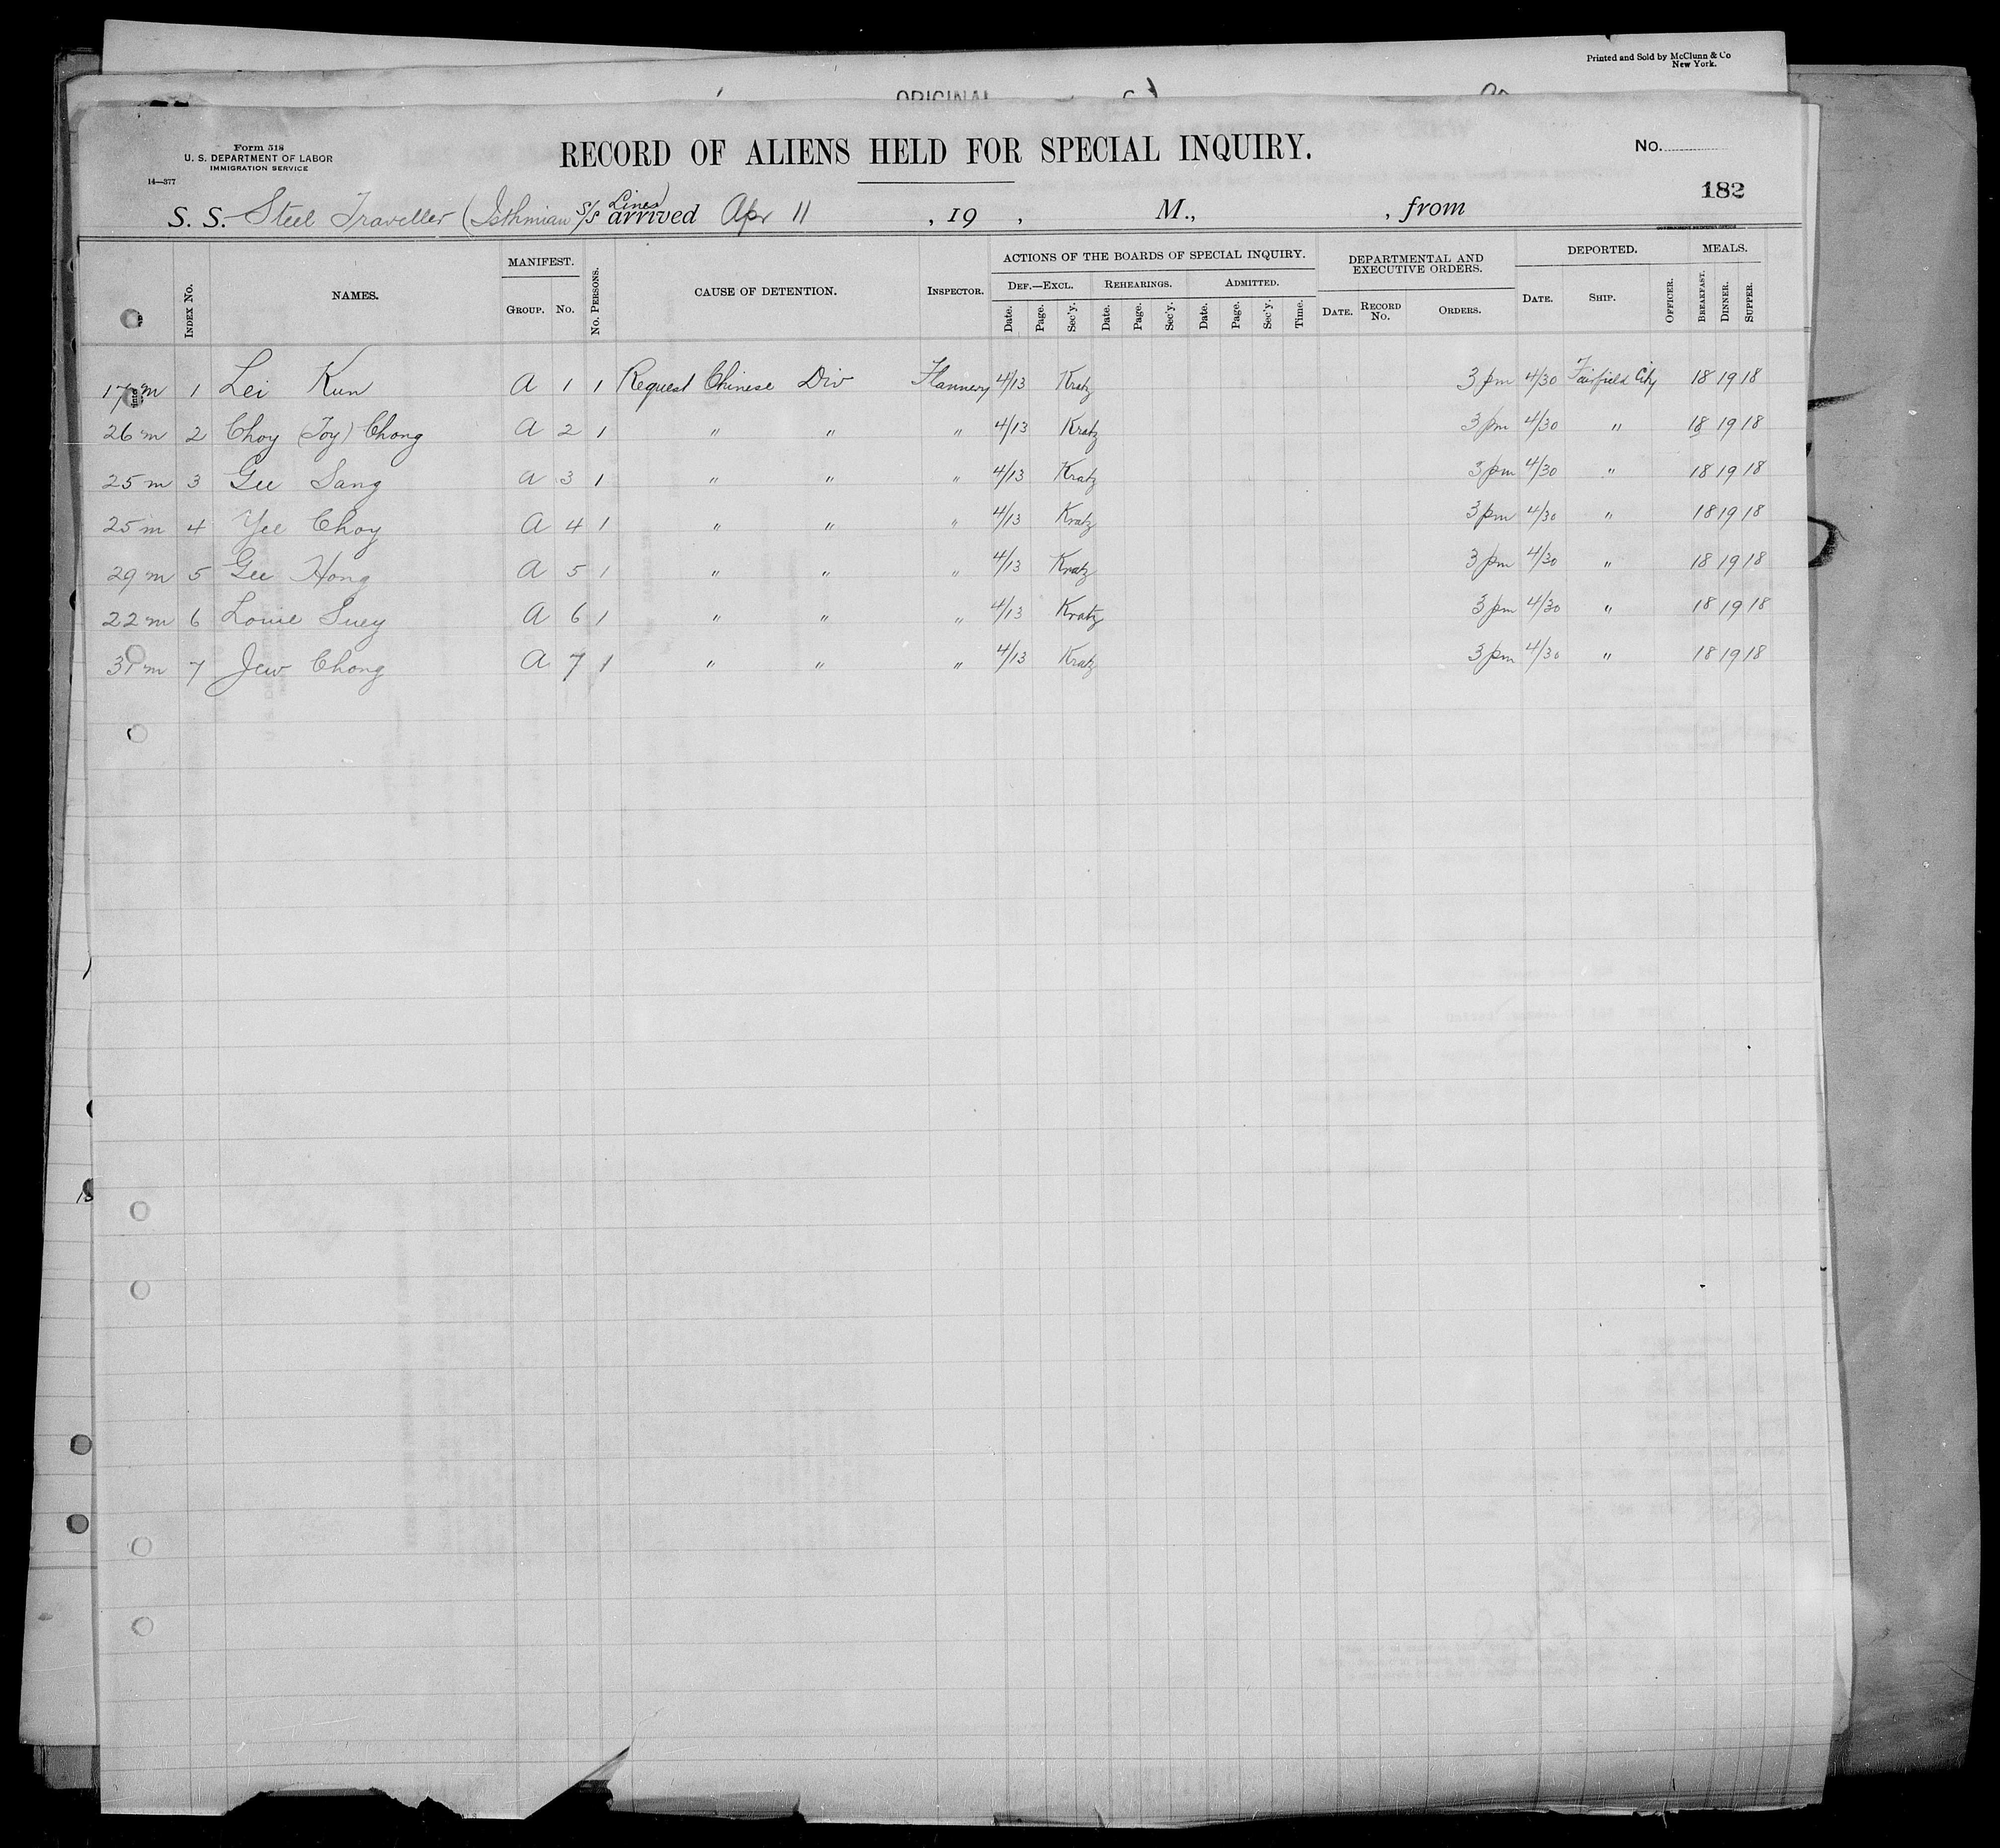 Printed and Sold by McClunn & Co
New York.
ORIGINAL
Form 518
U. S. DEPARTMENT OF LABOR
IMMIGRATION SERVICE
14—377
RECORD OF ALIENS HELD FOR SPECIAL INQUIRY.
No.
182
S. S. Steel Traveller (Isthmian S/S Lines) arrived Apr 11, 19 , M., , from
INDEX No. NAMES. MANIFEST. GROUP. No. No. PERSONS. CAUSE OF DETENTION. INSPECTOR. ACTIONS OF THE BOARDS OF SPECIAL INQUIRY. DEF.—EXCL. Date. Page. Sec'y. REHEARINGS. Date. Page. Sec'y. ADMITTED. Date. Page. Sec'y. Time. DEPARTMENTAL AND EXECUTIVE ORDERS. DATE. RECORD No. ORDERS. DEPORTED. DATE. SHIP. OFFICER. MEALS. BREAKFAST. DINNER. SUPPER.
17 m 1 Lei Kun A 1 1 Request Chinese Div Flannery 4/13 Kratz 3 pm 4/30 Fairfield City 18 19 18
26 m 2 Choy (Joy) Chong A 2 1 " " " 4/13 Kratz 3 pm 4/30 " 18 19 18
25 m 3 Gee Sang A 3 1 " " " 4/13 Kratz 3 pm 4/30 " 18 19 18
25 m 4 Yee Choy A 4 1 " " " 4/13 Kratz 3 pm 4/30 " 18 19 18
29 m 5 Gee Hong A 5 1 " " " 4/13 Kratz 3 pm 4/30 " 18 19 18
22 m 6 Louie Suey A 6 1 " " " 4/13 Kratz 3 pm 4/30 " 18 19 18
31 m 7 Jew Chong A 7 1 " " " 4/13 Kratz 3 pm 4/30 " 18 19 18